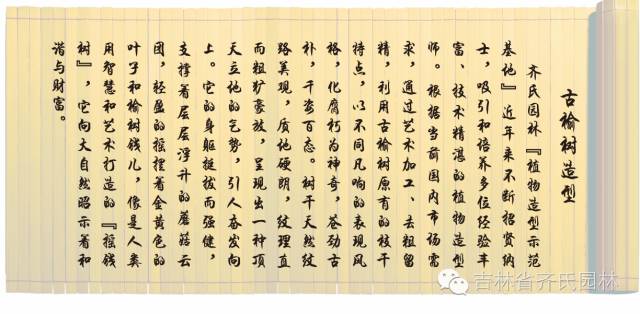 古榆树造型
齐氏园林『植物造型示范
基地』近年来不断招贤纳
士，吸引和培养多位经验丰
富、技术精湛的植物造型
师。根据当前国内市场需
求，通过艺术加工、去粗留
精，利用古榆树原有的枝干
特点，以不同凡响的表现风
格，化腐朽为神奇，苍劲古
朴，千姿百态。树干天然纹
路美观，质地硬朗，纹理直
而粗犷豪放，呈现出一种顶
天立地的气势，引人奋发向
上。它的身躯挺拔而强健，
支撑着层层浮升的蘑菇云
团，轻盈的摇摆着金黄色的
叶子和榆树钱儿，像是人类
用智慧和艺术打造的『摇钱
树』，它向大自然昭示着和
谐与财富。
吉林省齐氏园林